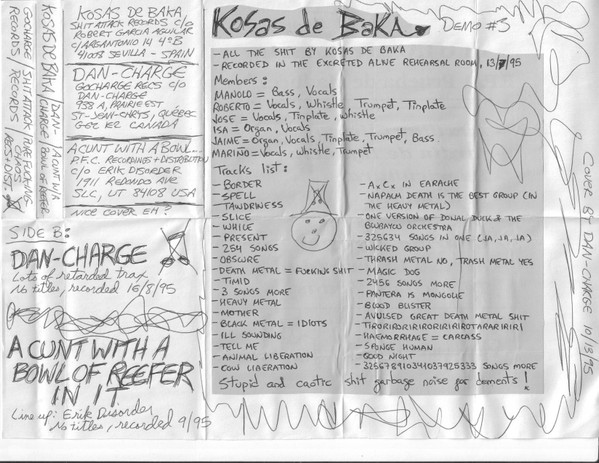 KOSAS DE BAKA
SHIT ATTACK RECORDS C/O
ROBERT GARCIA AGUILAR
C/ARGANTONIO 14 4ºB
41008 SEVILLA - SPAIN
DAN-CHARGE
GOCHARGE RECS C/O
DAN-CHARGE
938 A, PRAIRIE EST
ST-JEAN-CHRYS, QUÉBEC
CANADA
A CUNT WITH A BOWL...
P.F.C. RECORDINGS + DISTRIBUTION
C/O ERIK DISORDER
1911 REDONDO AVE
SLC, UT 84108 USA
NICE COVER EH?
KOSAS DE BAKA
SHIT ATTACK
RECORDS
DAN-
CHARGE
GOCHARGE
RECORDS/
A CUNT W/A
BOWL OF REEFER
RECS+DIST.
SIDE B:
DAN-CHARGE
Lots of retarded trax
No titles, recorded 16/8/95
A CUNT WITH A
BOWL OF REEFER
IN IT
Line up: Erik Disorder
No titles, recorded 9/95
KOSAS de BAKA
DEMO #3
- ALL THE SHIT BY KOSAS DE BAKA
- RECORDED IN THE EXCRETED ALIVE REHEARSAL ROOM, 13/7/95
Members:
MANOLO = Bass, Vocals
ROBERTO = Vocals, Whistle, Trumpet, Tinplate
JOSE = Vocals, Tinplate, Whistle
ISA = Organ, Vocals
JAIME = Organ, Vocals, Tinplate, Trumpet, Bass
MARINO = Vocals, Whistle, Trumpet
Tracks list:
- BORDER
- SPELL
- TAWDRINESS
- SLICE
- WHILE
- PRESENT
- 254 SONGS
- OBSCURE
- DEATH METAL = FUCKING SHIT
- TIMID
- 3 SONGS MORE
- HEAVY METAL
- MOTHER
- BLACK METAL = IDIOTS
- ILL SOUNDING
- TELL ME
- ANIMAL LIBERATION
- COW LIBERATION
- AxCx IN EARACHE
- NAPALM DEATH IS THE BEST GROUP (IN
THE HEAVY METAL)
- ONE VERSION OF DONAL DUCK & THE
ORCHESTRA
- 325634 SONGS IN ONE (JA, JA, JA)
- WICKED GROUP
- THRASH METAL NO, TRASH METAL YES
- MAGIC DOG
- 2456 SONGS MORE
- PANTERA IS MONGOLIC
- BLOOD BLISTER
- AVULSED GREAT DEATH METAL SHIT
- HAEMORRHAGE = CARCASS
- SPONGE HUMAN
- GOOD NIGHT
SONGS MORE
Stupid and caotic shit garbage noise for dements!
COVER BY DAN-CHARGE 10/13/95